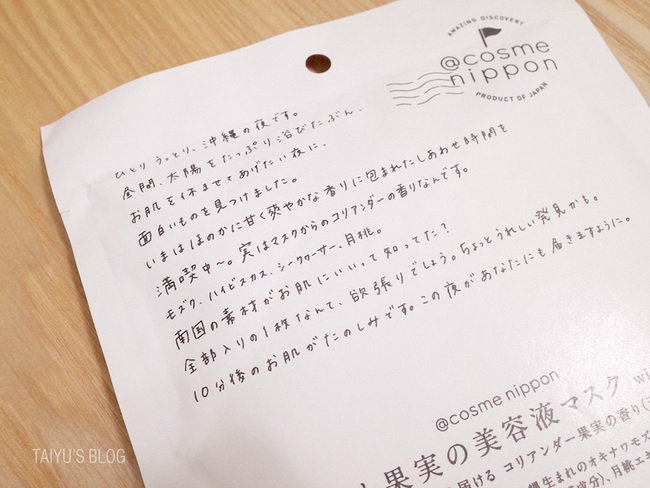 AMAZING DISCOVERY
@cosme
nippon
PRODUCT OF JAPAN
ひとり うっとり、沖縄の夜です。
全開、太陽をたっぷり浴びたぶん、
お肌を休ませてあげたい夜に、
面白いものを見つけました。
いまはほのかに甘く爽やかな香りに包まれたしあわせ時間を
満喫中〜。実はマスクからのコリアンダーの香りなんです。
モズク、ハイビスカス、シークヮーサー、月桃。
南国の素材がお肌にいいって知ってた?
全部入りの1枚なんて、欲張りでしょう。ちょっとうれしい発見かも。
10分後のお肌がたのしみです。この夜があなたにも届きますように。
@cosme nippon
果実の美容液マスク wi
届ける コリアンダー果実の香り
生まれのオキナワモズ
成分)、月桃エキ
TAIYU'S BLOG